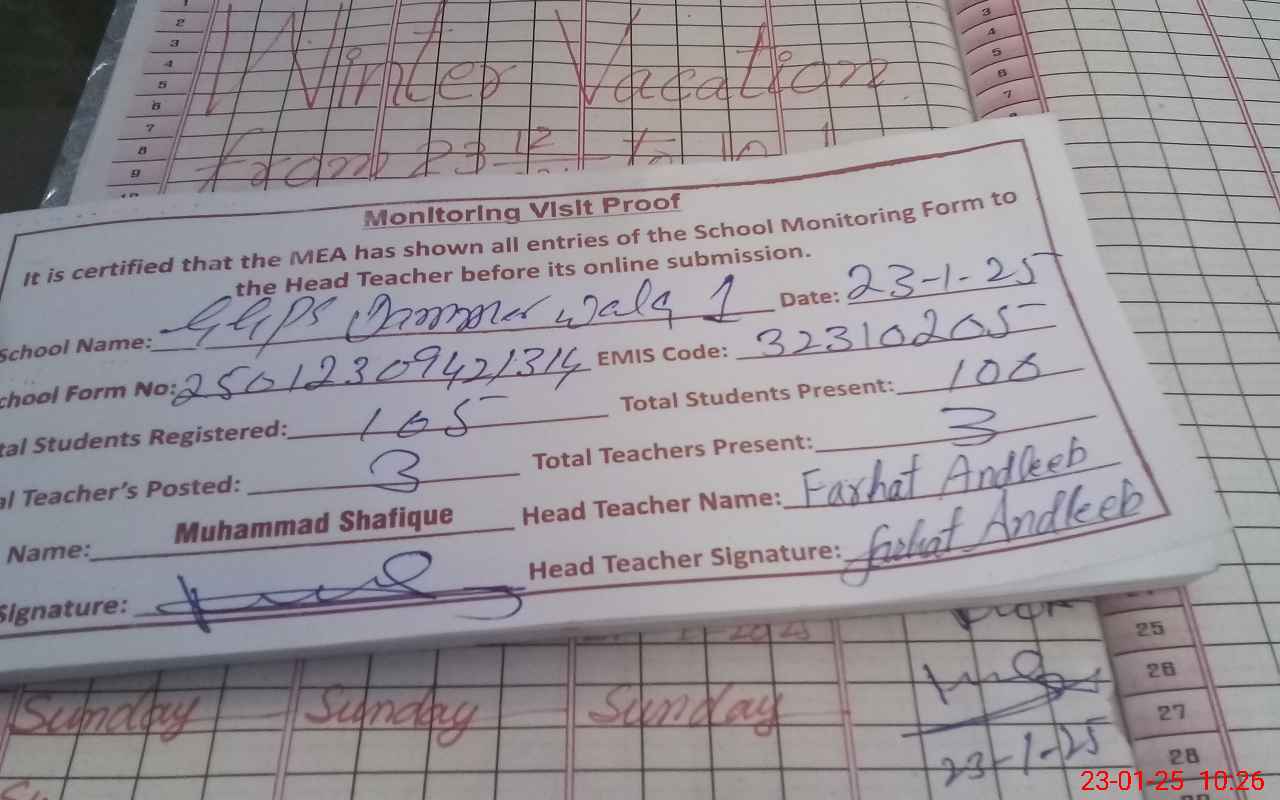 1
2
3
4
5
6
7
8
9
Winter Vacation
from 23 12 to 10 1
3
4
5
6
7
8
Monitoring Visit Proof
It is certified that the MEA has shown all entries of the School Monitoring Form to
the Head Teacher before its online submission.
School Name: GGPS Wala 1 Date: 23-1-25
chool Form No: 25012309421314 EMIS Code: 32310205
tal Students Registered: 105 Total Students Present: 100
al Teacher's Posted: 3 Total Teachers Present: 3
Name: Muhammad Shafique Head Teacher Name: Farhat Andleeb
Signature: Head Teacher Signature: farhat Andleeb
25
26
27
28
Sunday Sunday Sunday
23-1-25
23-01-25 10:26